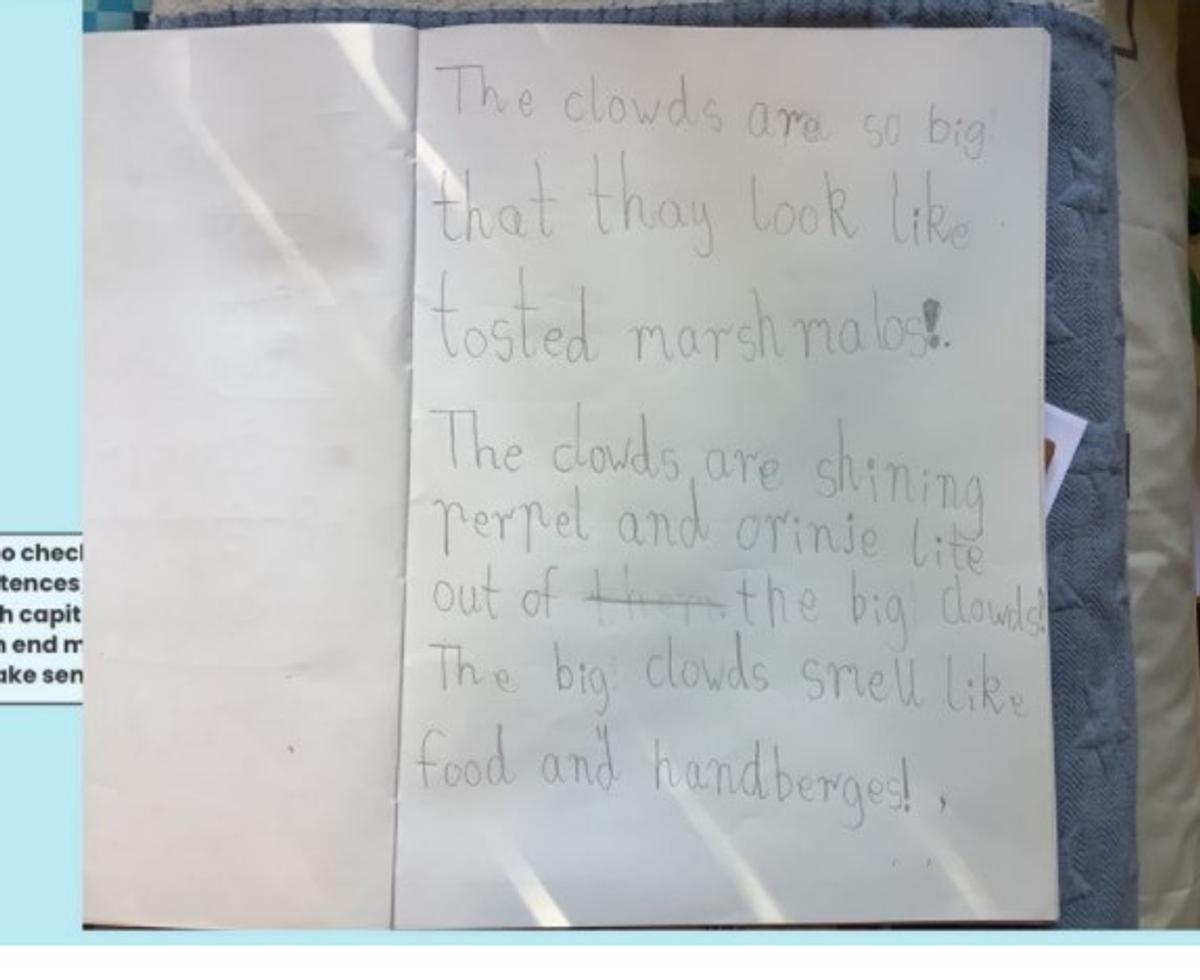 The clowds are so big
that thay look like
tosted marshmalos!.
The clowds are shining
perpel and orinje lite
out of the big clowds!
The big clowds smell like
food and handberges!
o chec
tences
h capit
n end m
ake sen